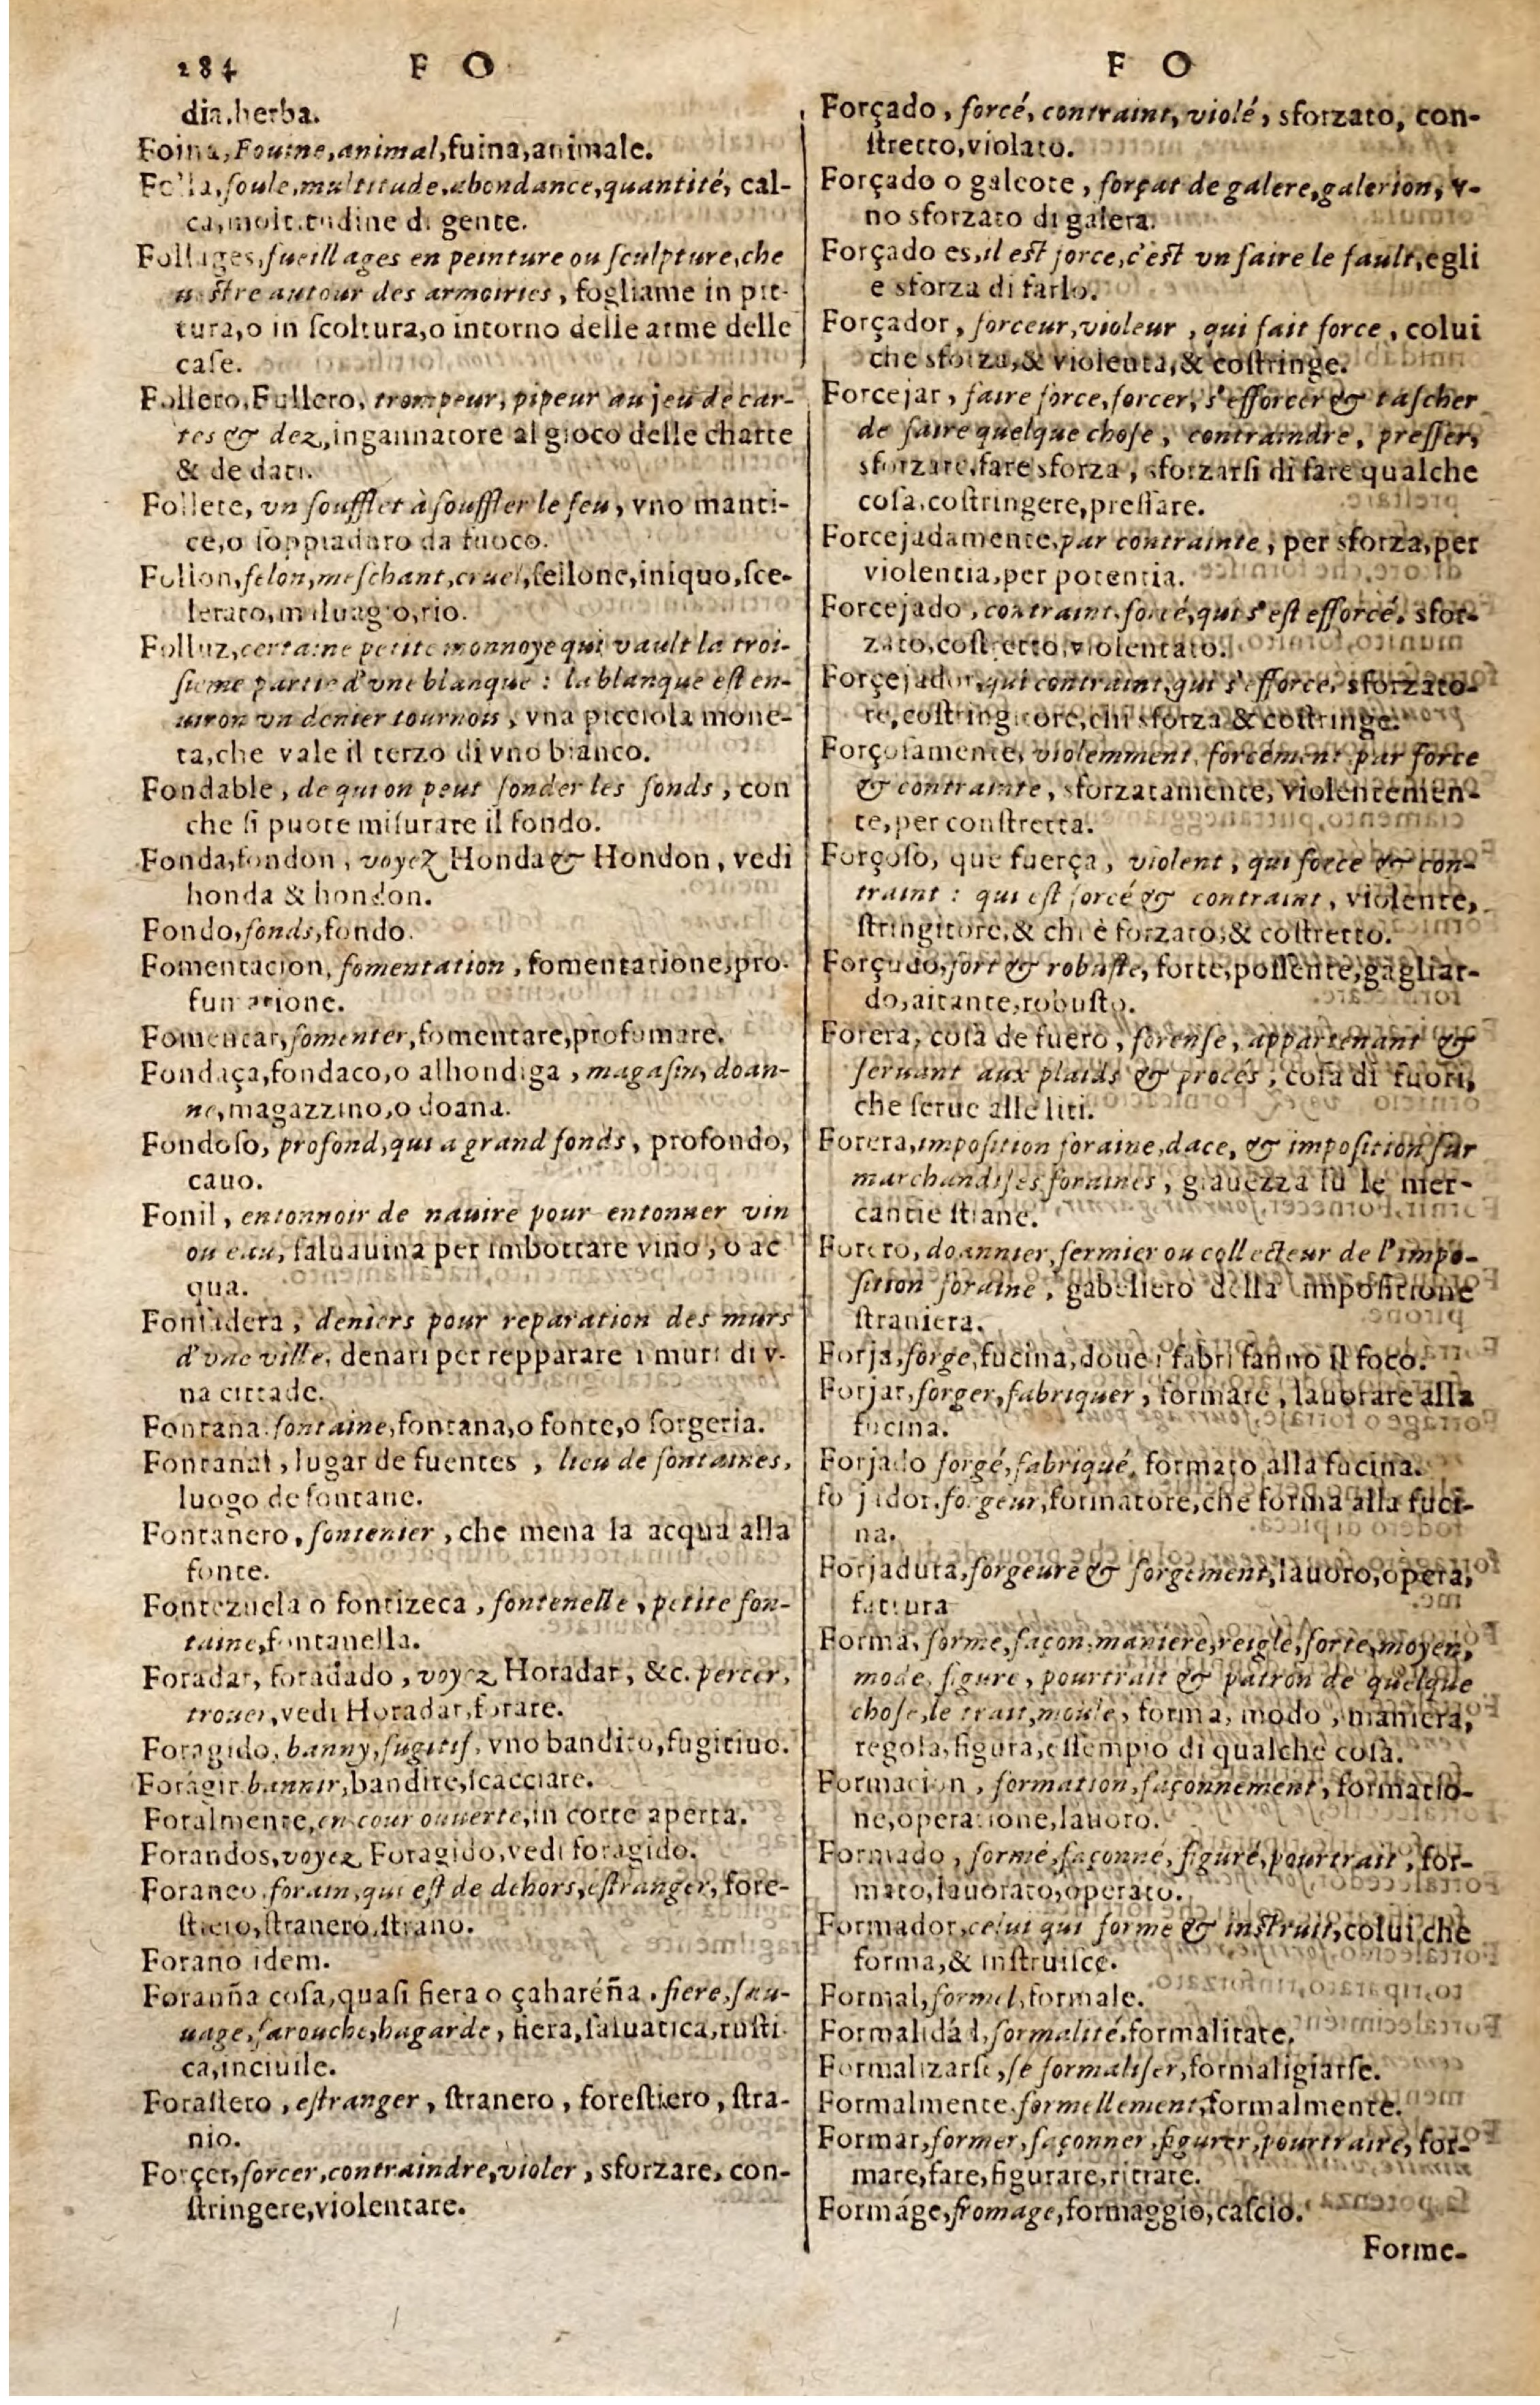 284 F O
dia.herba.
Foina, Fouine, animal, fuina, animale.
Folla, foule, multitude, abondance, quantité, cal-
ca, moltitudine di gente.
Follages, fueillages en peinture ou ſculpture, che
autour des armoiries, fogliame in pit-
tura, o in ſcoltura, o intorno delle arme delle
caſe.
Follero, Fullero, trompeur, pipeur au jeu de car-
tes & dez, ingannatore al gioco delle charte
& de dati.
Follete, vn ſoufflet à ſouffler le feu, vno manti-
ce, o ſoppiadoro da fuoco.
Follon, felon, meſchant, cruel, fellone, iniquo, ſce-
lerato, maluagio, rio.
Folluz, certaine petite monnoye qui vault la troi-
ſieme partie d'vne blanque: la blanque eſt en-
uiron vn denier tournois, vna picciola mone-
ta, che vale il terzo di vno bianco.
Fondable, de qui on peut ſonder les fonds, con
che ſi puote miſurare il fondo.
Fonda, fondon, voyez Honda & Hondon, vedi
honda & hondon.
Fondo, fonds, fondo.
Fomentacion, fomentation, fomentatione, pro-
fumatione.
Fomentar, fomenter, fomentare, profumare.
Fondaça, fondaco, o alhondiga, magaſin, doan-
ne, magazzino, o doana.
Fondoſo, profond, qui a grand fonds, profondo,
cauo.
Fonil, entonnoir de nauire pour entonner vin
ou eau, ſaluauina per imbottare vino, o ac
qua.
Fonſadera, deniers pour reparation des murs
d'vne ville, denari per repparare i muri di v-
na cittade.
Fontana. fontaine, fontana, o fonte, o ſorgeria.
Fontanal, lugar de fuentes, lieu de fontaines,
luogo de fontane.
Fontanero, fontenier, che mena la acqua alla
fonte.
Fontezuela o fontizeca, fontenelle, petite fon-
taine, fontanella.
Foradar, foradado, voyez Horadar, &c. percer,
trouer, vedi Horadar, forare.
Foragido, banny, fugitif, vno bandito, fugitiuo.
Foragir bannir, bandire, ſcacciare.
Foralmente, en cour ouuerte, in corte aperta.
Forandos, voyez Foragido, vedi foragido.
Foraneo. forain, qui eſt de dehors, eſtranger, fore-
ſtiero, ſtranero, ſtrano.
Forano idem.
Foranña coſa, quaſi fiera o çahareña, fiere, ſau-
uage, farouche, hagarde, fiera, ſaluatica, ruſti-
ca, inciuile.
Foraſtero, eſtranger, ſtranero, foreſtiero, ſtra-
nio.
Forçer, forcer, contraindre, violer, sforzare, con-
ſtringere, violentare.
F O
Forçado, forcé, contraint, violé, sforzato, con-
ſtretto, violato.
Forçado o galeote, forçat de galere, galerion, v-
no sforzato di galera.
Forçado es, il eſt force, c'eſt vn faire le fault, egli
e sforza di farlo.
Forçador, forceur, violeur, qui fait force, colui
che sforza, & violenta, & coſtringe.
Forcejar, faire force, forcer, s'efforcer & taſcher
de faire quelque choſe, contraindre, preſſer,
sforzare, fare sforza, sforzarſi di fare qualche
coſa, coſtringere, preſſare.
Forcejadamente, par contrainte, per sforza, per
violentia, per potentia.
Forcejado, contraint, forcé, qui s'eſt efforcé, sfor-
zato, coſtretto, violentato.
Forçejador, qui contraint, qui s'efforce, sforzato-
re, coſtringitore, chi sforza & coſtringe.
Forçoſamente, violemment, forcément, par force
& contrainte, sforzatamente, violentemen-
te, per conſtretta.
Forçoſo, que fuerça, violent, qui force & con-
traint: qui eſt forcé & contraint, violente,
ſtringitore, & chi è forzato, & coſtretto.
Forçudo, fort & robuſte, forte, poſſente, gagliar-
do, aitante, robuſto.
Forera, coſa de fuero, forenſe, appartenant &
ſeruant aux plaids & procés, coſa di fuori,
che ſerue alle liti.
Forera, impoſition foraine, dace, & impoſition ſur
marchandiſes foraines, grauezza ſu le mer-
cantie ſtrane.
Forero, doannier, fermier ou collecteur de l'impo-
ſition foraine, gabelliero della impoſitione
ſtraniera.
Forja, forge, fucina, doue i fabri fanno il foco.
Forjar, forger, fabriquer, formare, lauorare alla
fucina.
Forjado forgé, fabriqué, formato alla fucina.
forjador. forgeur, formatore, che forma alla fuci-
na.
Forjadura, forgeure & forgement, lauoro, opera,
fattura
Forma, forme, façon, maniere, reigle, ſorte, moyen,
mode, figure, pourtrait & patron de quelque
choſe, le trait, moule, forma, modo, maniera,
regola, figura, eſſempio di qualche coſa.
Formacion, formation, façonnement, formatio-
ne, operatione, lauoro.
Formado, formé, façonné, figuré, pourtrait, for-
mato, lauorato, operato.
Formador, celui qui forme & inſtruit, colui che
forma, & inſtruiſce.
Formal, formel, formale.
Formalidád, formalité, formalitate.
Formalizarſe, ſe formaliſer, formaligiarſe.
Formalmente. formellement, formalmente.
Formar, former, façonner, figurer, pourtraire, for-
mare, fare, figurare, ritrare.
Formáge, fromage, formaggio, caſcio.
Forme-